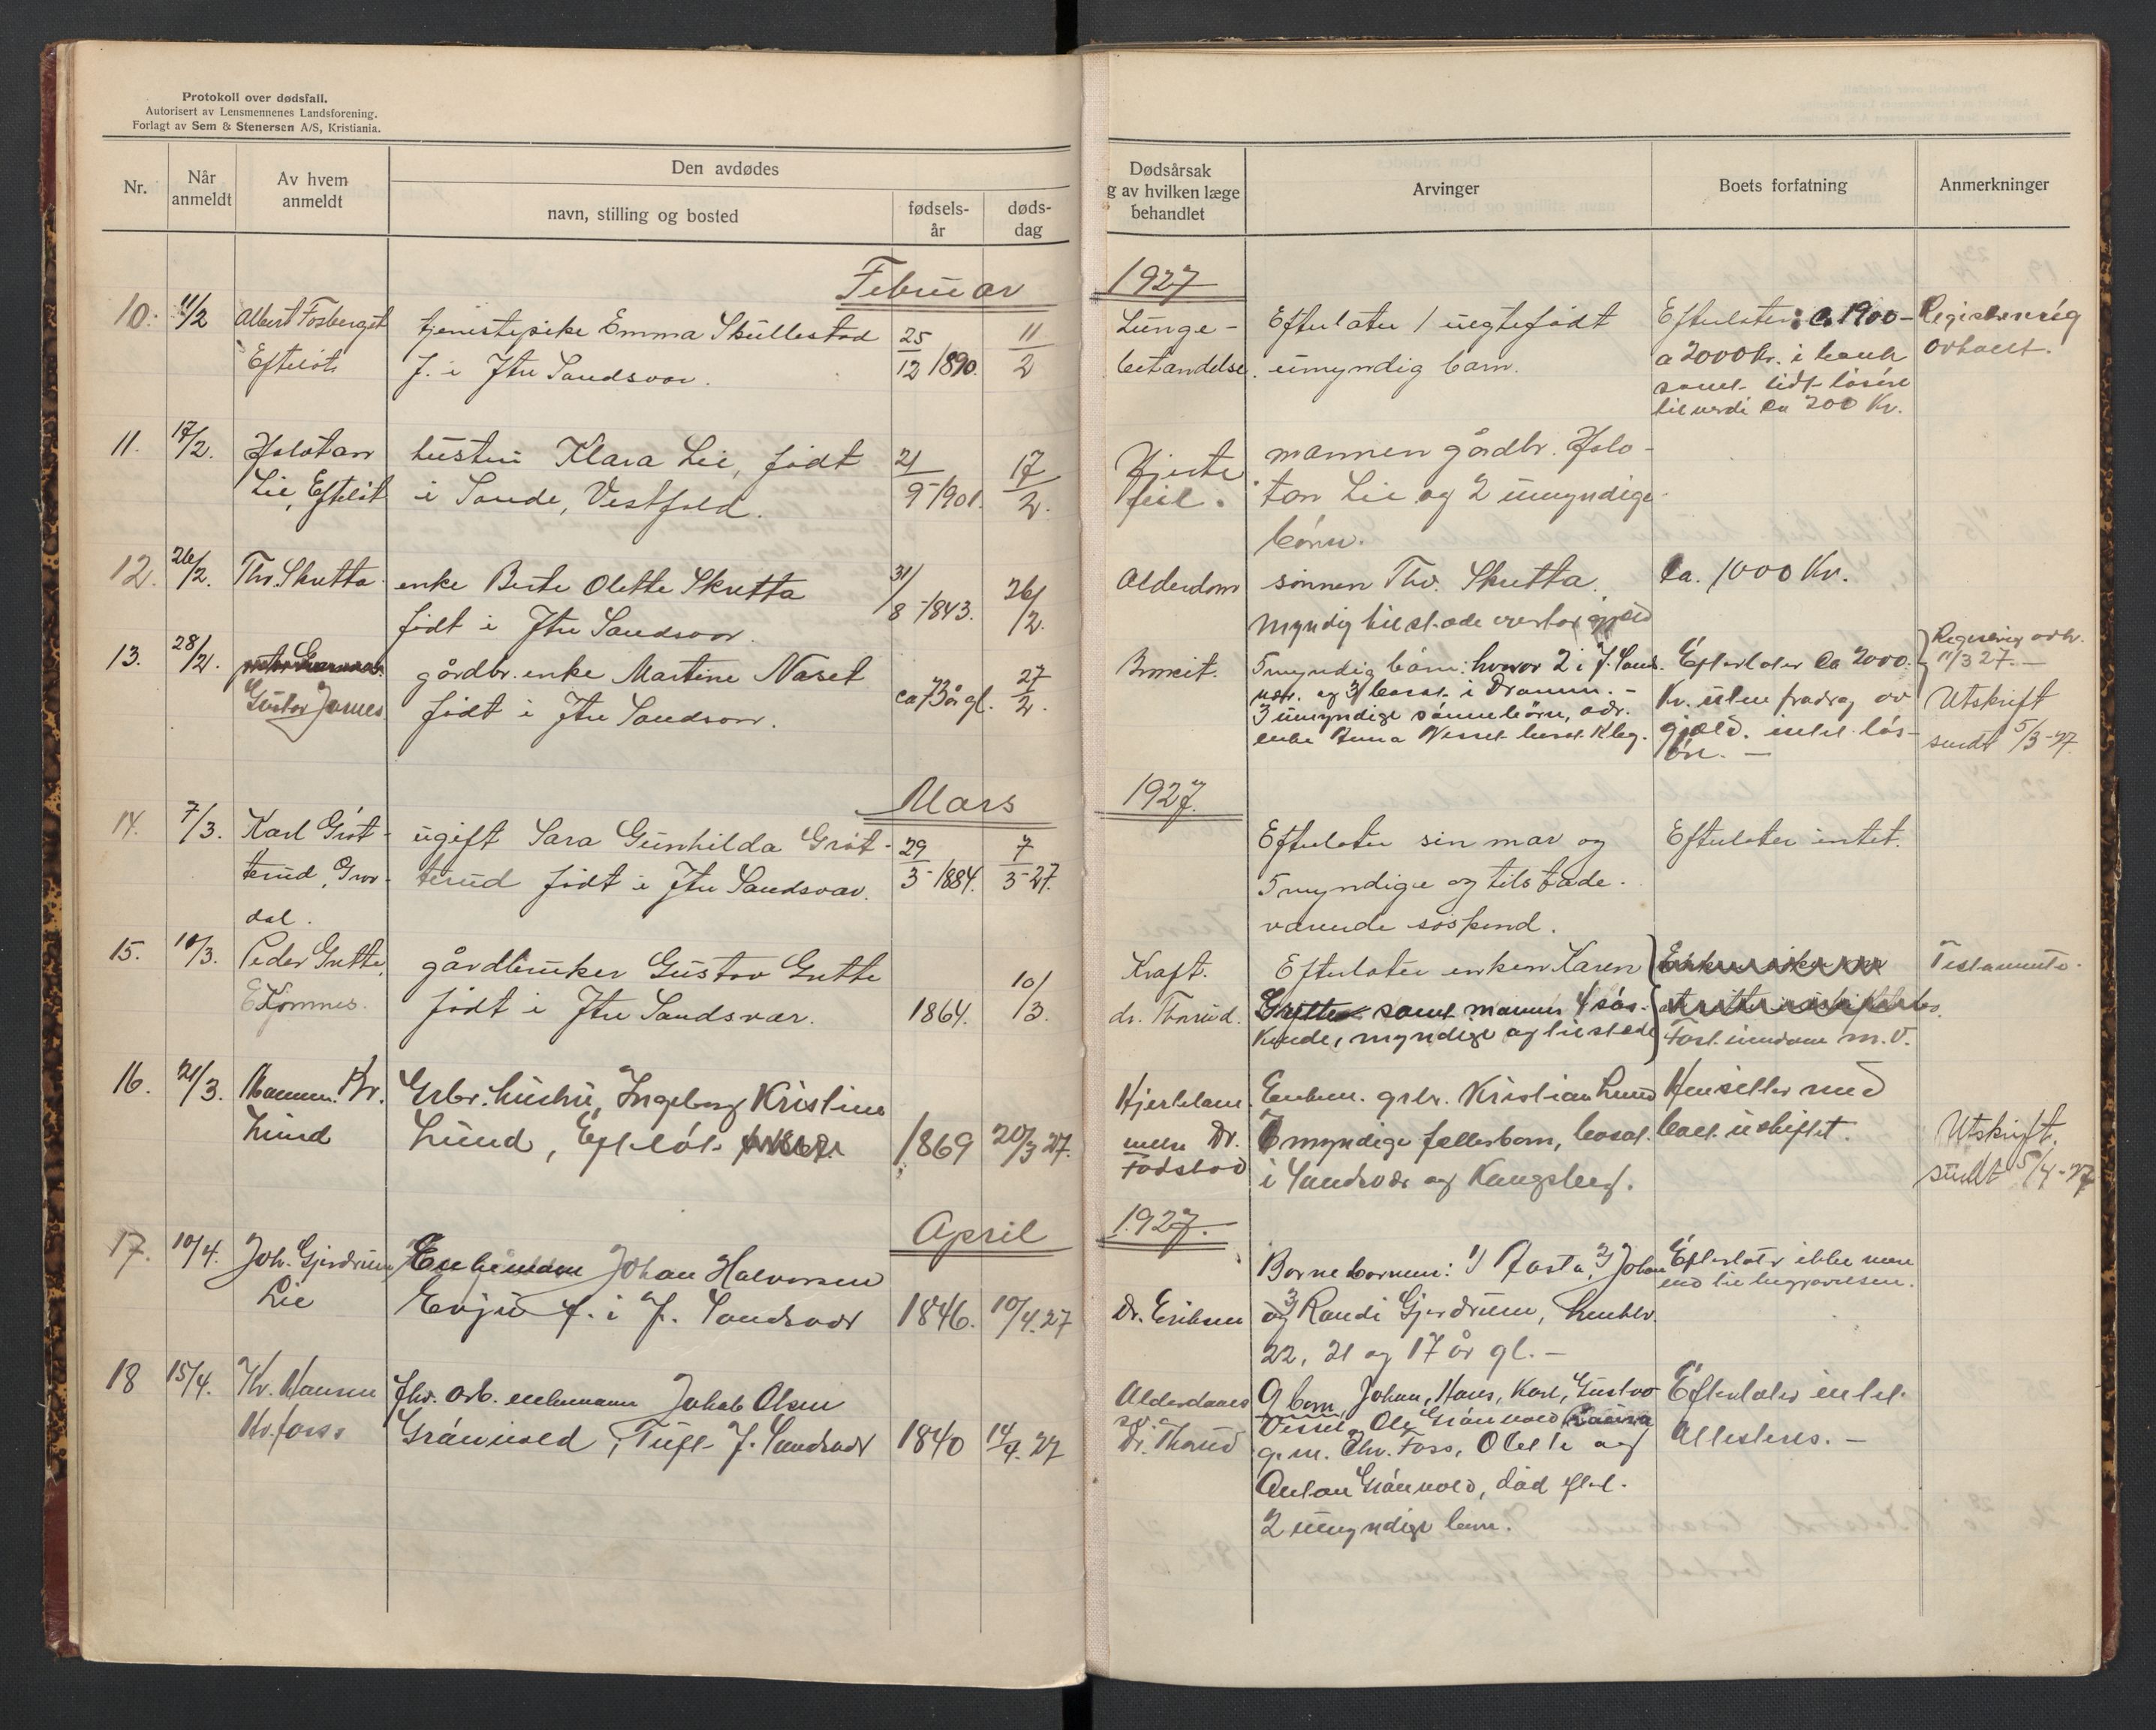 Protokoll over dødsfall.
Autorisert av Lensmennenes Landsforening.
Forlagt av Sem & Stenersen A/S, Kristiania.
Nr.
Når
anmeldt
Av hvem
anmeldt
Den avdødes
navn, stilling og bosted
fødsels-
år
døds-
dag
Dødsårsak
g av hvilken læge
behandlet
Arvinger
Boets forfatning
Anmerkninger
Februar
1927
10.
11/2
Albert Fosberget
Efteløt
tjenestepike Emma Skullestad
f. i Ytre Sandsvær.
25
12 1890.
11
2
Lunge-
betændelse.
Efterlater 1 uegtefødt
umyndig barn.
Efterlater ca 1900-
a 2000 kr. i bank
samt lidt løsøre
til verdi ca 200 Kr.
Registrering
avholdt.
11.
17/2.
Halstan
Lie, Efteløt
hustru Klara Lie, født
i Sande, Vestfold.
21
9-1901.
17
2.
Hjerte
feil.
mannen gårdbr. Hals-
tan Lie og 2 umyndige
børn.
12.
26/2.
Thv. Skutta
enke Berte Olette Skutta
født i Ytre Sandsvær.
31/
8-1843.
26/
2.
Alderdom
sønnen Thv. Skutta.
myndig tilstede overtar gjæld
Ca. 1000 Kr.
13.
28/2.
Gustav James
gårdbr. enke Martine Næset
født i Ytre Sandsvær.
ca 73 år gl.
27
2.
5 myndig børn: hvorav 2 i Y. Sand.
vær. og 3 bosat i Dramm. -
3 umyndige sønnebørn, adr.
enke Anna Næset bosat Kbg.
Efterlater ca 2000.
Kr. uten fradrag av
gjæld. intet løs-
øre. -
Registrering avh.
11/3 27. -
Utskrift
sendt 5/3-27.
Mars
1927.
14.
7/3.
Karl Grøt-
terud,
dal.
ugift Sara Gunhilda Grøt-
terud født i Ytre Sandsvær.
29
3-1884.
7
3-27.
Efterlater sin mor og
5 myndige og tilstede.
værende søskend.
Efterlater intet.
15.
10/3.
Peder Grette,
Komnes.
gårdbruker Gustav Grette
født i Ytre Sandsvær.
1864.
10/
3.
Kræft.
dr. Thorud.
Efterlater enken Karen
Grette samt mannens 4 søs-
kende, myndige og tilstede
Fast eiendom m.v.
Testamente.
16.
21/3.
Mannen Kr.
Lund
Grbr. hustru, Ingeborg Kristine
Lund, Efteløt
1869
20/3 27.
Hjertelam
melse Dr.
Fodstad
Enkem. grbr. Kristian Lund
6 myndige fellesbarn, bosat.
i Sandsvær og Kongsberg.
Hensitter med
boet uskiftet.
Utskrift.
sendt 5/4-27
April
1927.
17.
10/4.
Joh. Gjerdrum
Lie
Enkemann Johan Halvorsen
Evju f. i Y. Sandsvær
1846.
10/4.27
Dr. Eriksen
Barnebarnene: 1) Aasta, 2) Johan
og 3) Randi Gjerdrum, henhv.
22, 21 og 17 år gl. -
Efterlater ikke mere
end til begravelsen.
18
15/4.
Kr. Hansen
fhv. arb. enkemann Jakob Olsen
Grønvold, Tuft Y. Sandsvær
1840
14/4. 27
Alderdoms
sv.
Dr. Thorud
9 barn, Johan, Hans, Karl, Gustav
Ole Grønvold
g.m. Chr. Foss, Olette og
Anton Grønvold, død eft.
2 umyndige barn.
Efterlater intet.
Allesteds. -